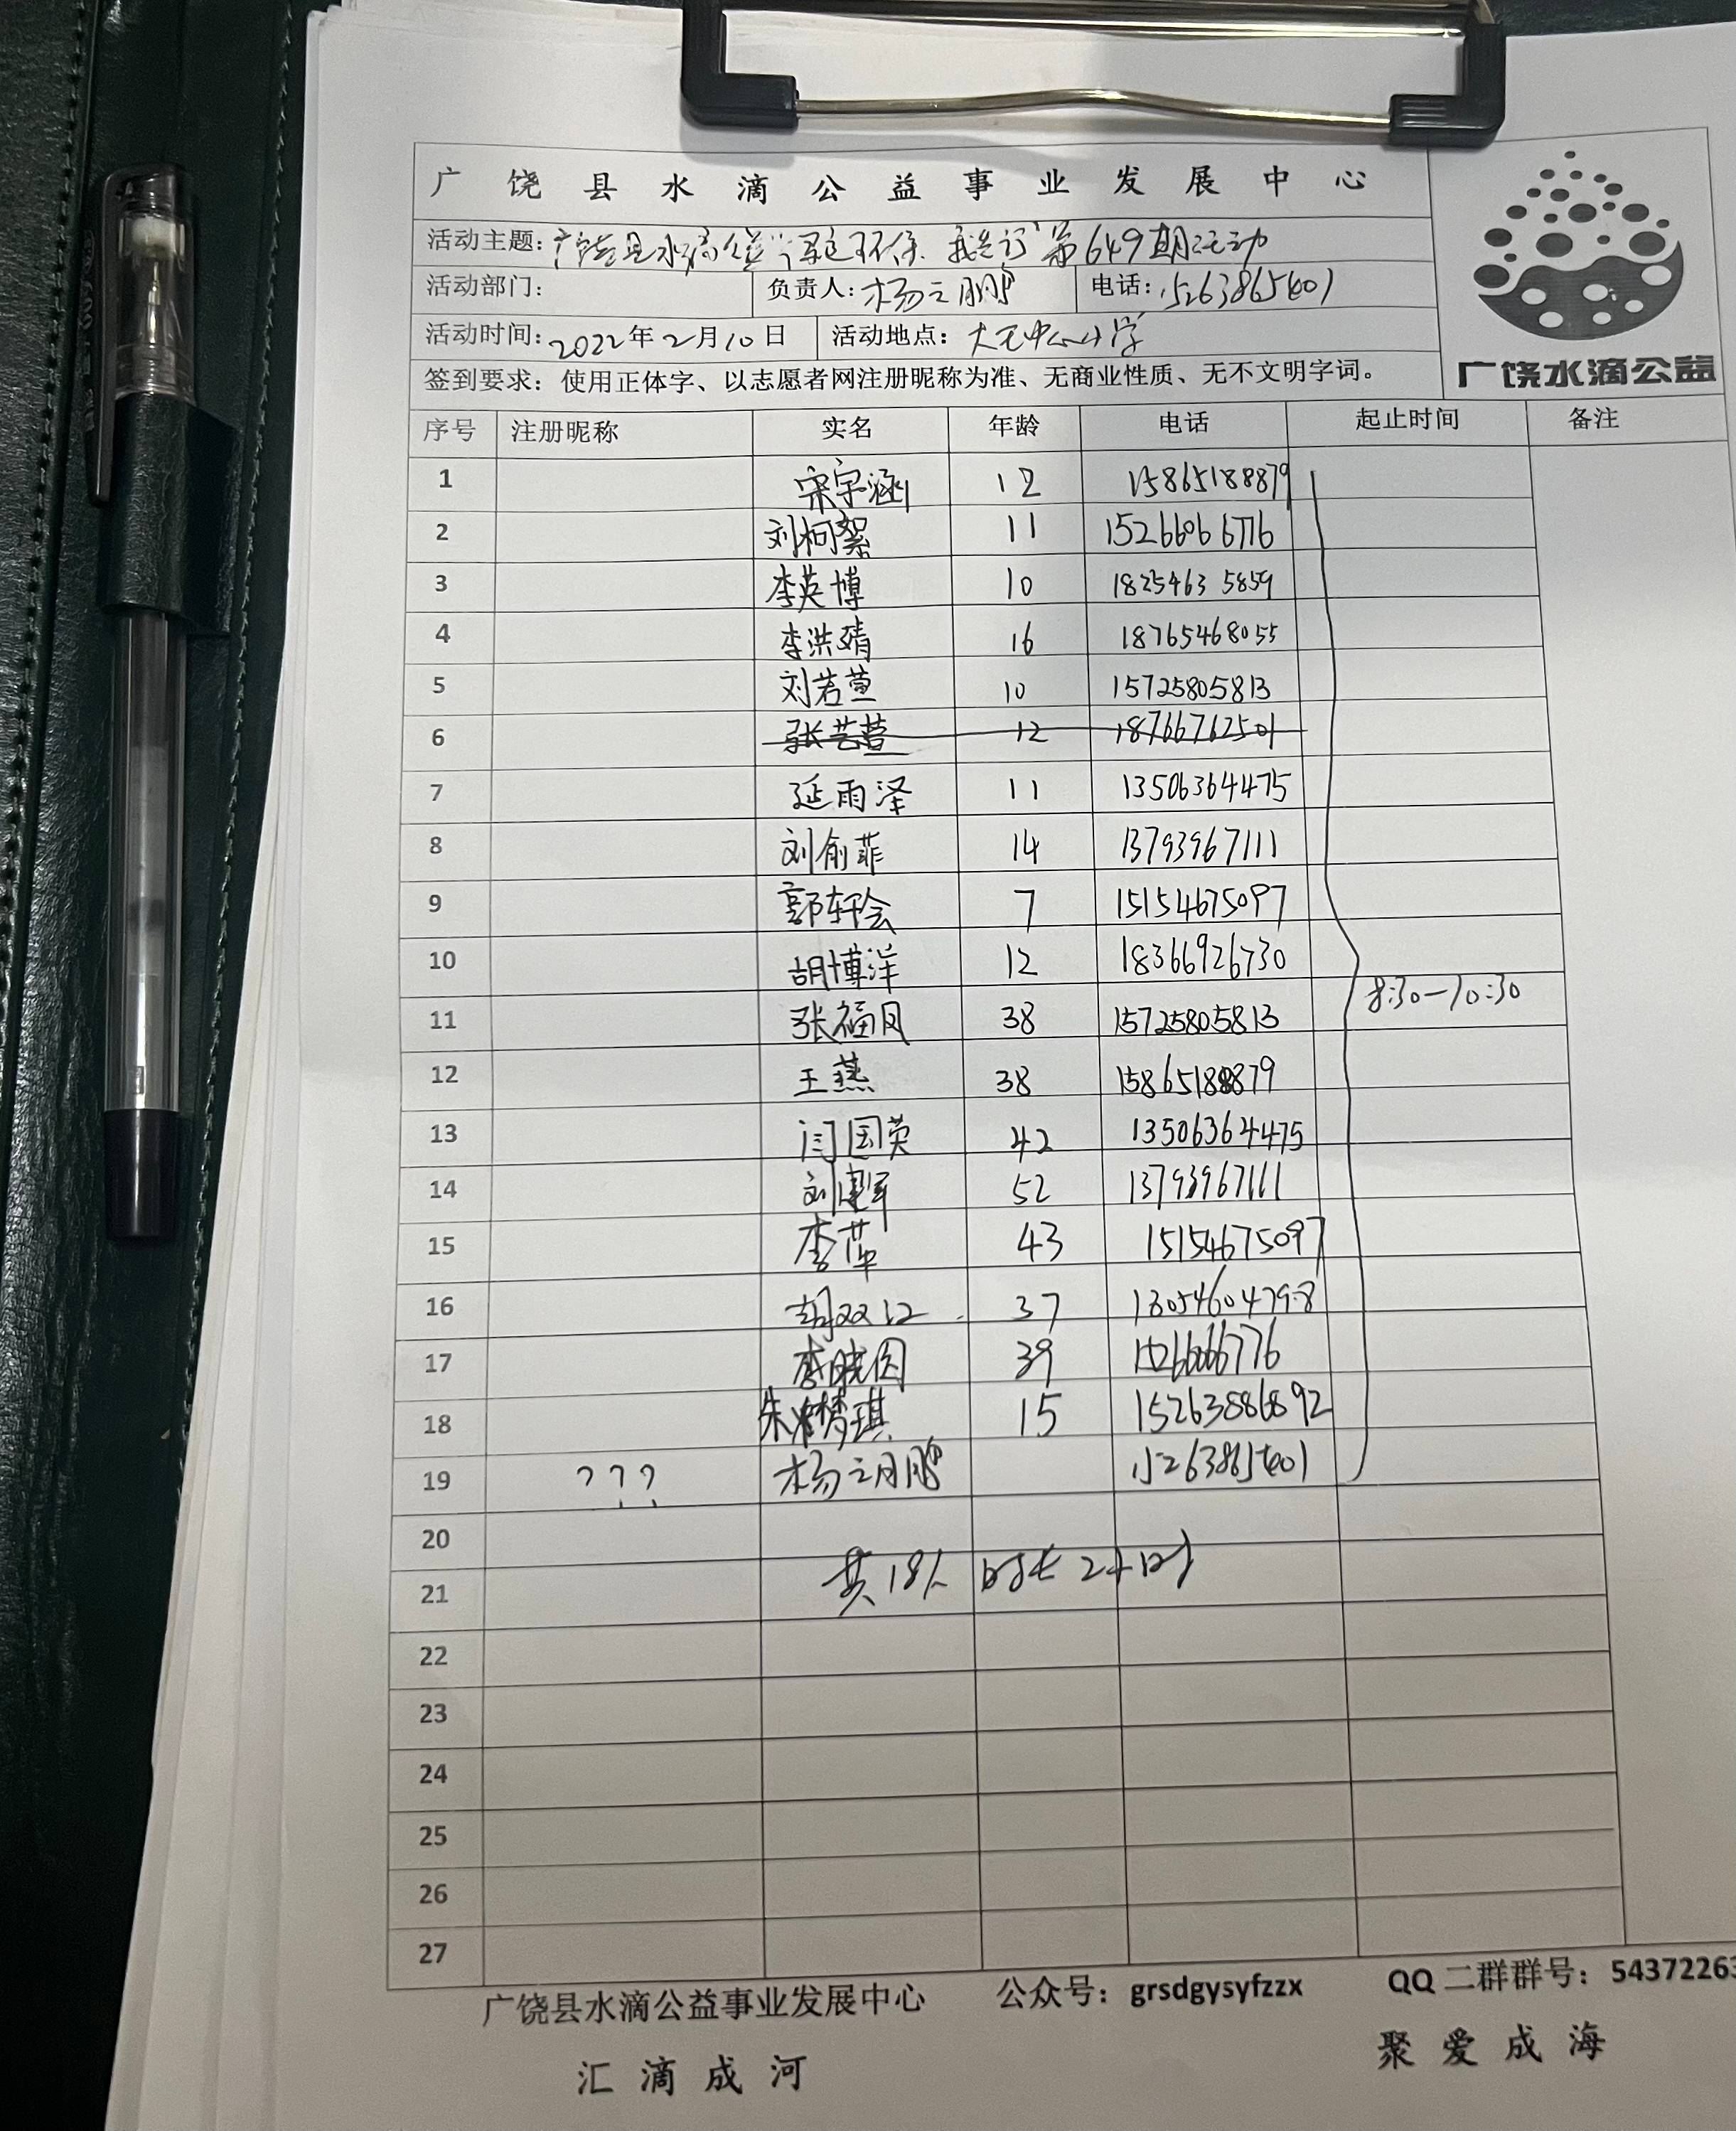 广饶县水滴公益事业发展中心
活动主题：广饶县水滴公益 环保 我先行 第649期活动
活动部门：
负责人：杨云鹏
电话：15263865401
活动时间：2022年2月10日
活动地点：大王中心小学
签到要求：使用正体字、以志愿者网注册昵称为准、无商业性质、无不文明字词。
广饶水滴公益
序号 注册昵称 实名 年龄 电话 起止时间 备注
1 宋宇涵 12 15865188879
2 刘柯絮 11 15266066776
3 李英博 10 18254635859
4 李洪婧 16 18765468055
5 刘若萱 10 15725805813
6 张芸萱 12 18766762501
7 延雨泽 11 13506364475
8 刘俞菲 14 13793967111
9 郭轩会 7 15154675097
10 胡博洋 12 18366926730
8:30—10:30
11 张福凤 38 15725805813
12 王燕 38 15865188879
13 闫国英 42 13506364475
14 刘建军 52 13793967111
15 李萍 43 15154675097
16 胡双江 37 13054604798
17 李晓圆 39 15266066776
18 朱梦琪 15 15263886892
19 ??? 杨云鹏 15263865401
20
共18人 时长2小时
21
22
23
24
25
26
27
广饶县水滴公益事业发展中心 公众号：grsdgysyfzzx QQ二群群号：54372263
汇滴成河 聚爱成海